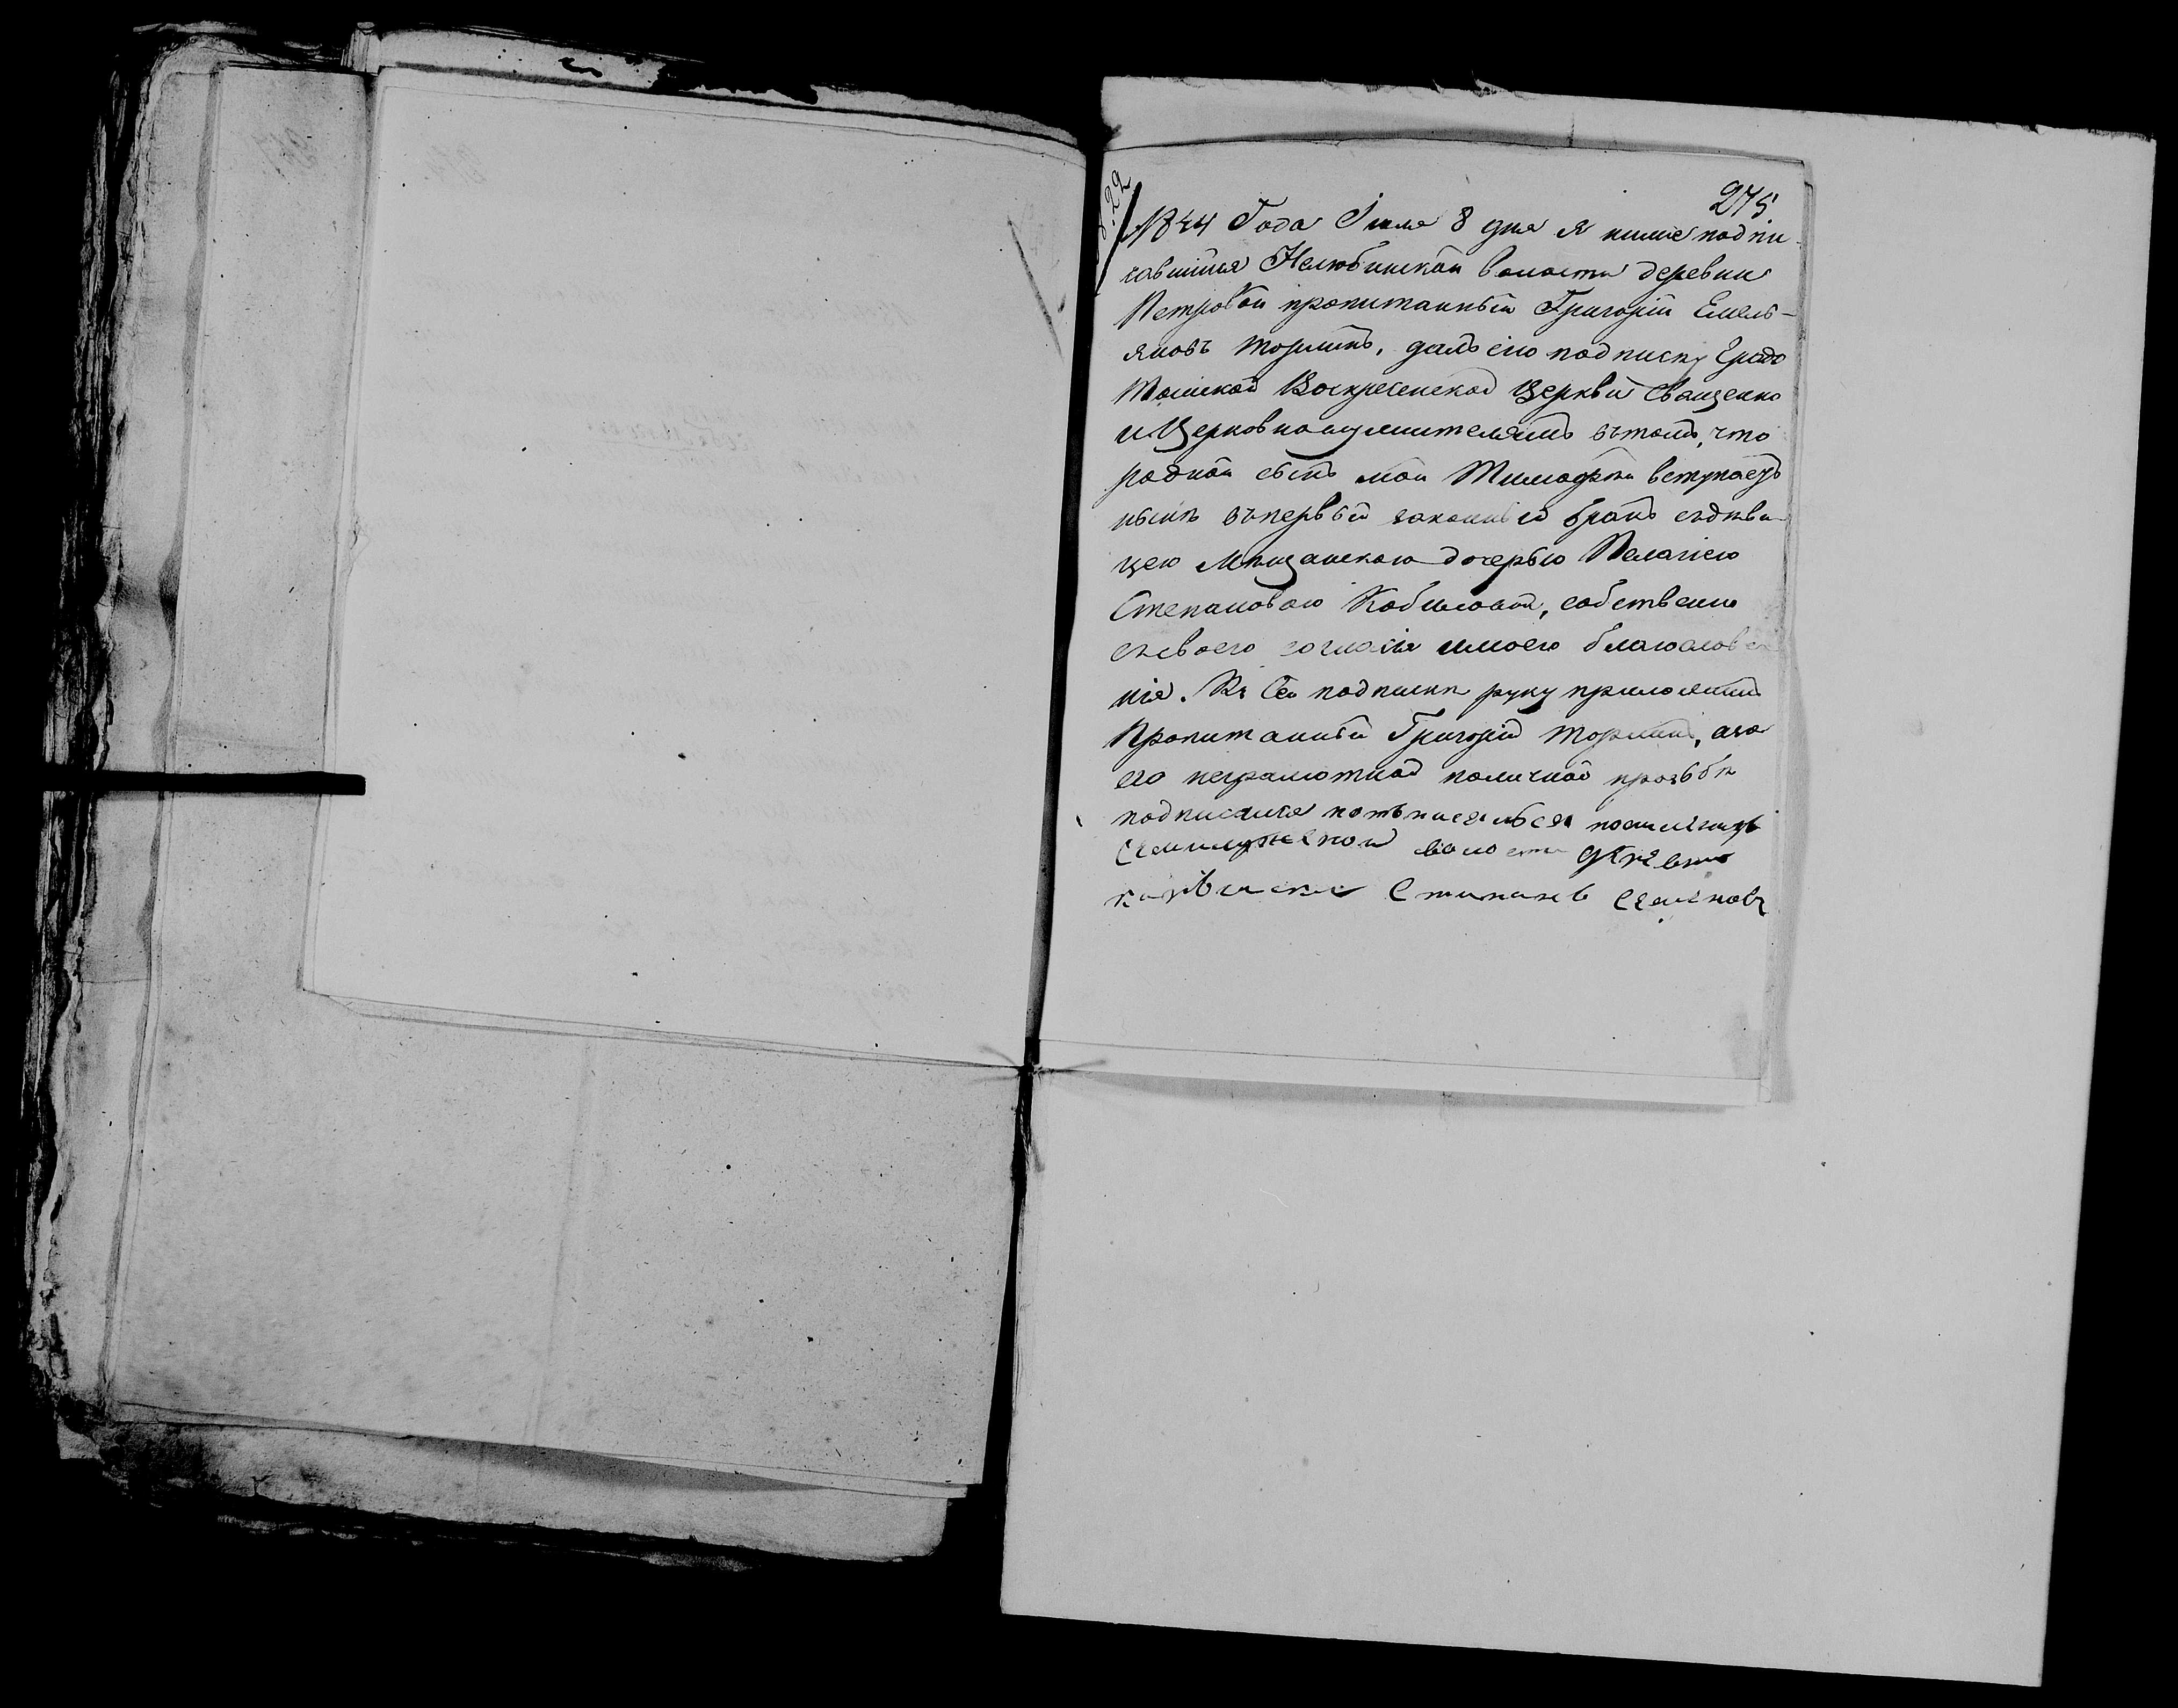 275.
22
1844 Года Іюля 8 дня я ниже подпи-
савшійся Нелюбинской волости деревни
Петровой пропитанный Григорій Емель-
яновъ далъ сію подписку Градо
Томской Воскресенской Церкви Священно
и Церковнослужителямъ вътомъ, что
родной сынъ мой Тимофей вступаетъ
нынѣ въпервый законный бракъ съдеви-
цею Мѣщанскою дочерью Пелагіею
Степановою собственно
съсвоего согласія имоего благослове
нія. Къ сей подпискѣ руку приложилъ
Пропитанный Григорій а за
его неграмотной поличной прозьбѣ
подписался
Семилужской волости деревни
Семеновъ